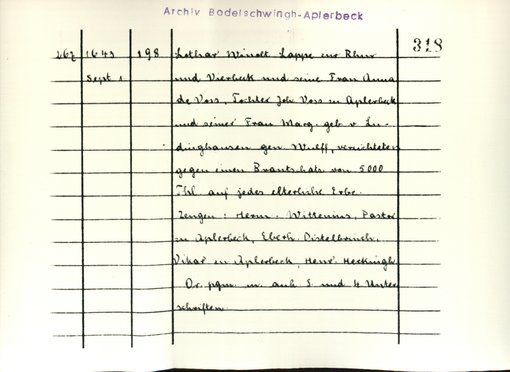 Archiv Bodelschwingh-Aplerbeck
318
267 1643 198 Lothar Winolt Lappe zur Rhur
Sept 1 und Vierbeck und seine Frau Anna
de Voss, Tochter Joh Voss in Aplerbeck
und seiner Frau Marg. geb v Lü-
dinghausen gen. Wulff, verzichteten
gegen einen Brautschatz von 5000
Thl. auf jedes elterliche Erbe.
Zeugen: Herm. Wittenius, Pastor
zu Aplerbeck, Eberh. Distelbrinck,
Vikar in Aplerbeck, Henr. Heckingh
Or. pgm. m. anh S. und 4 Unter
schriften.